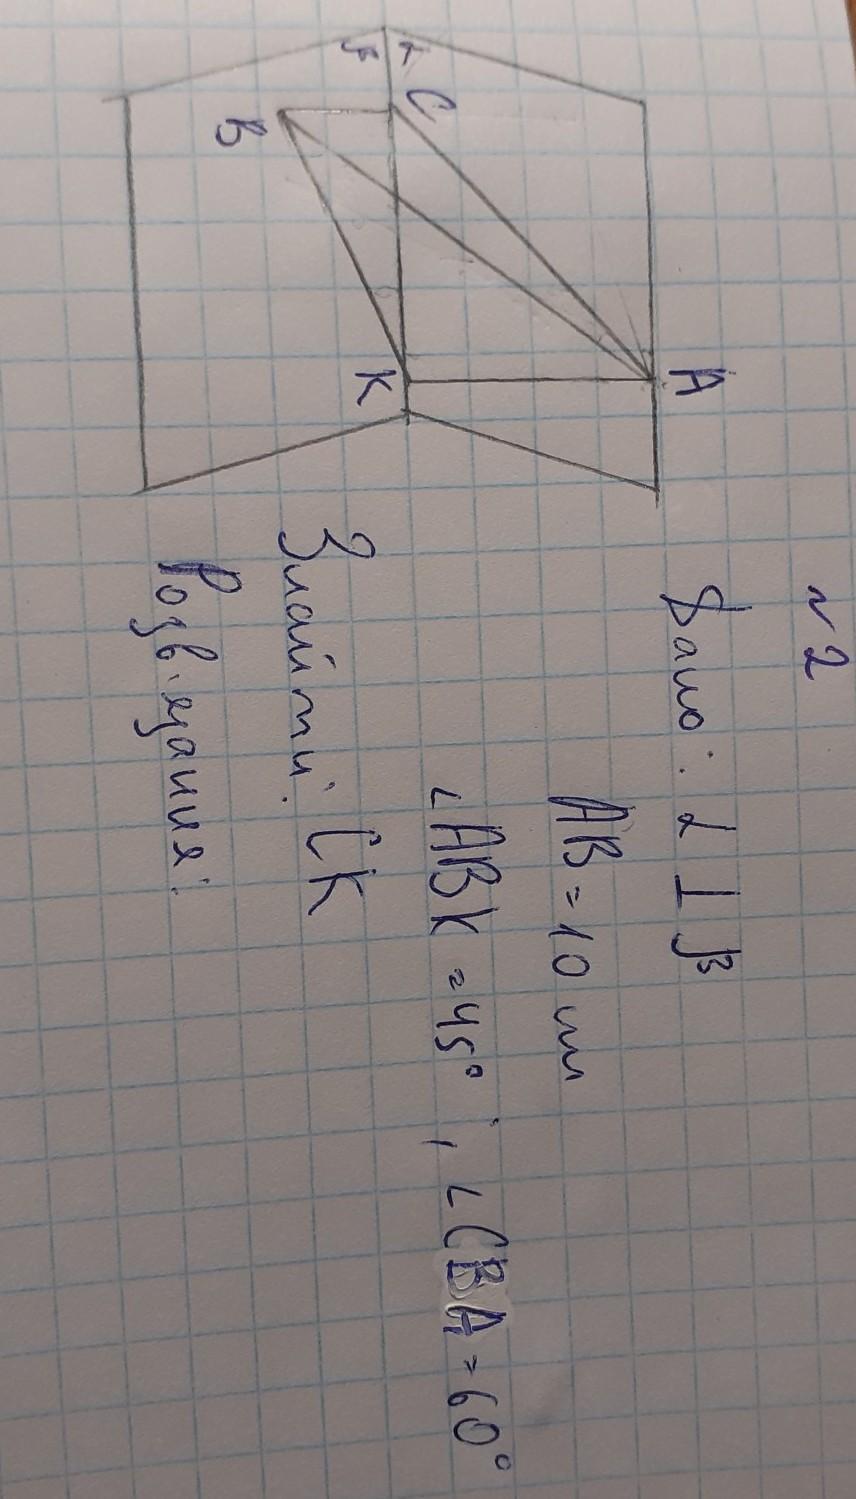 №2
Дано: α ⊥ β
AB = 10 см
∠ABK = 45°, ∠CBA = 60°
Знайти: CK
Розв'язання:
A
C
K
B
α
β